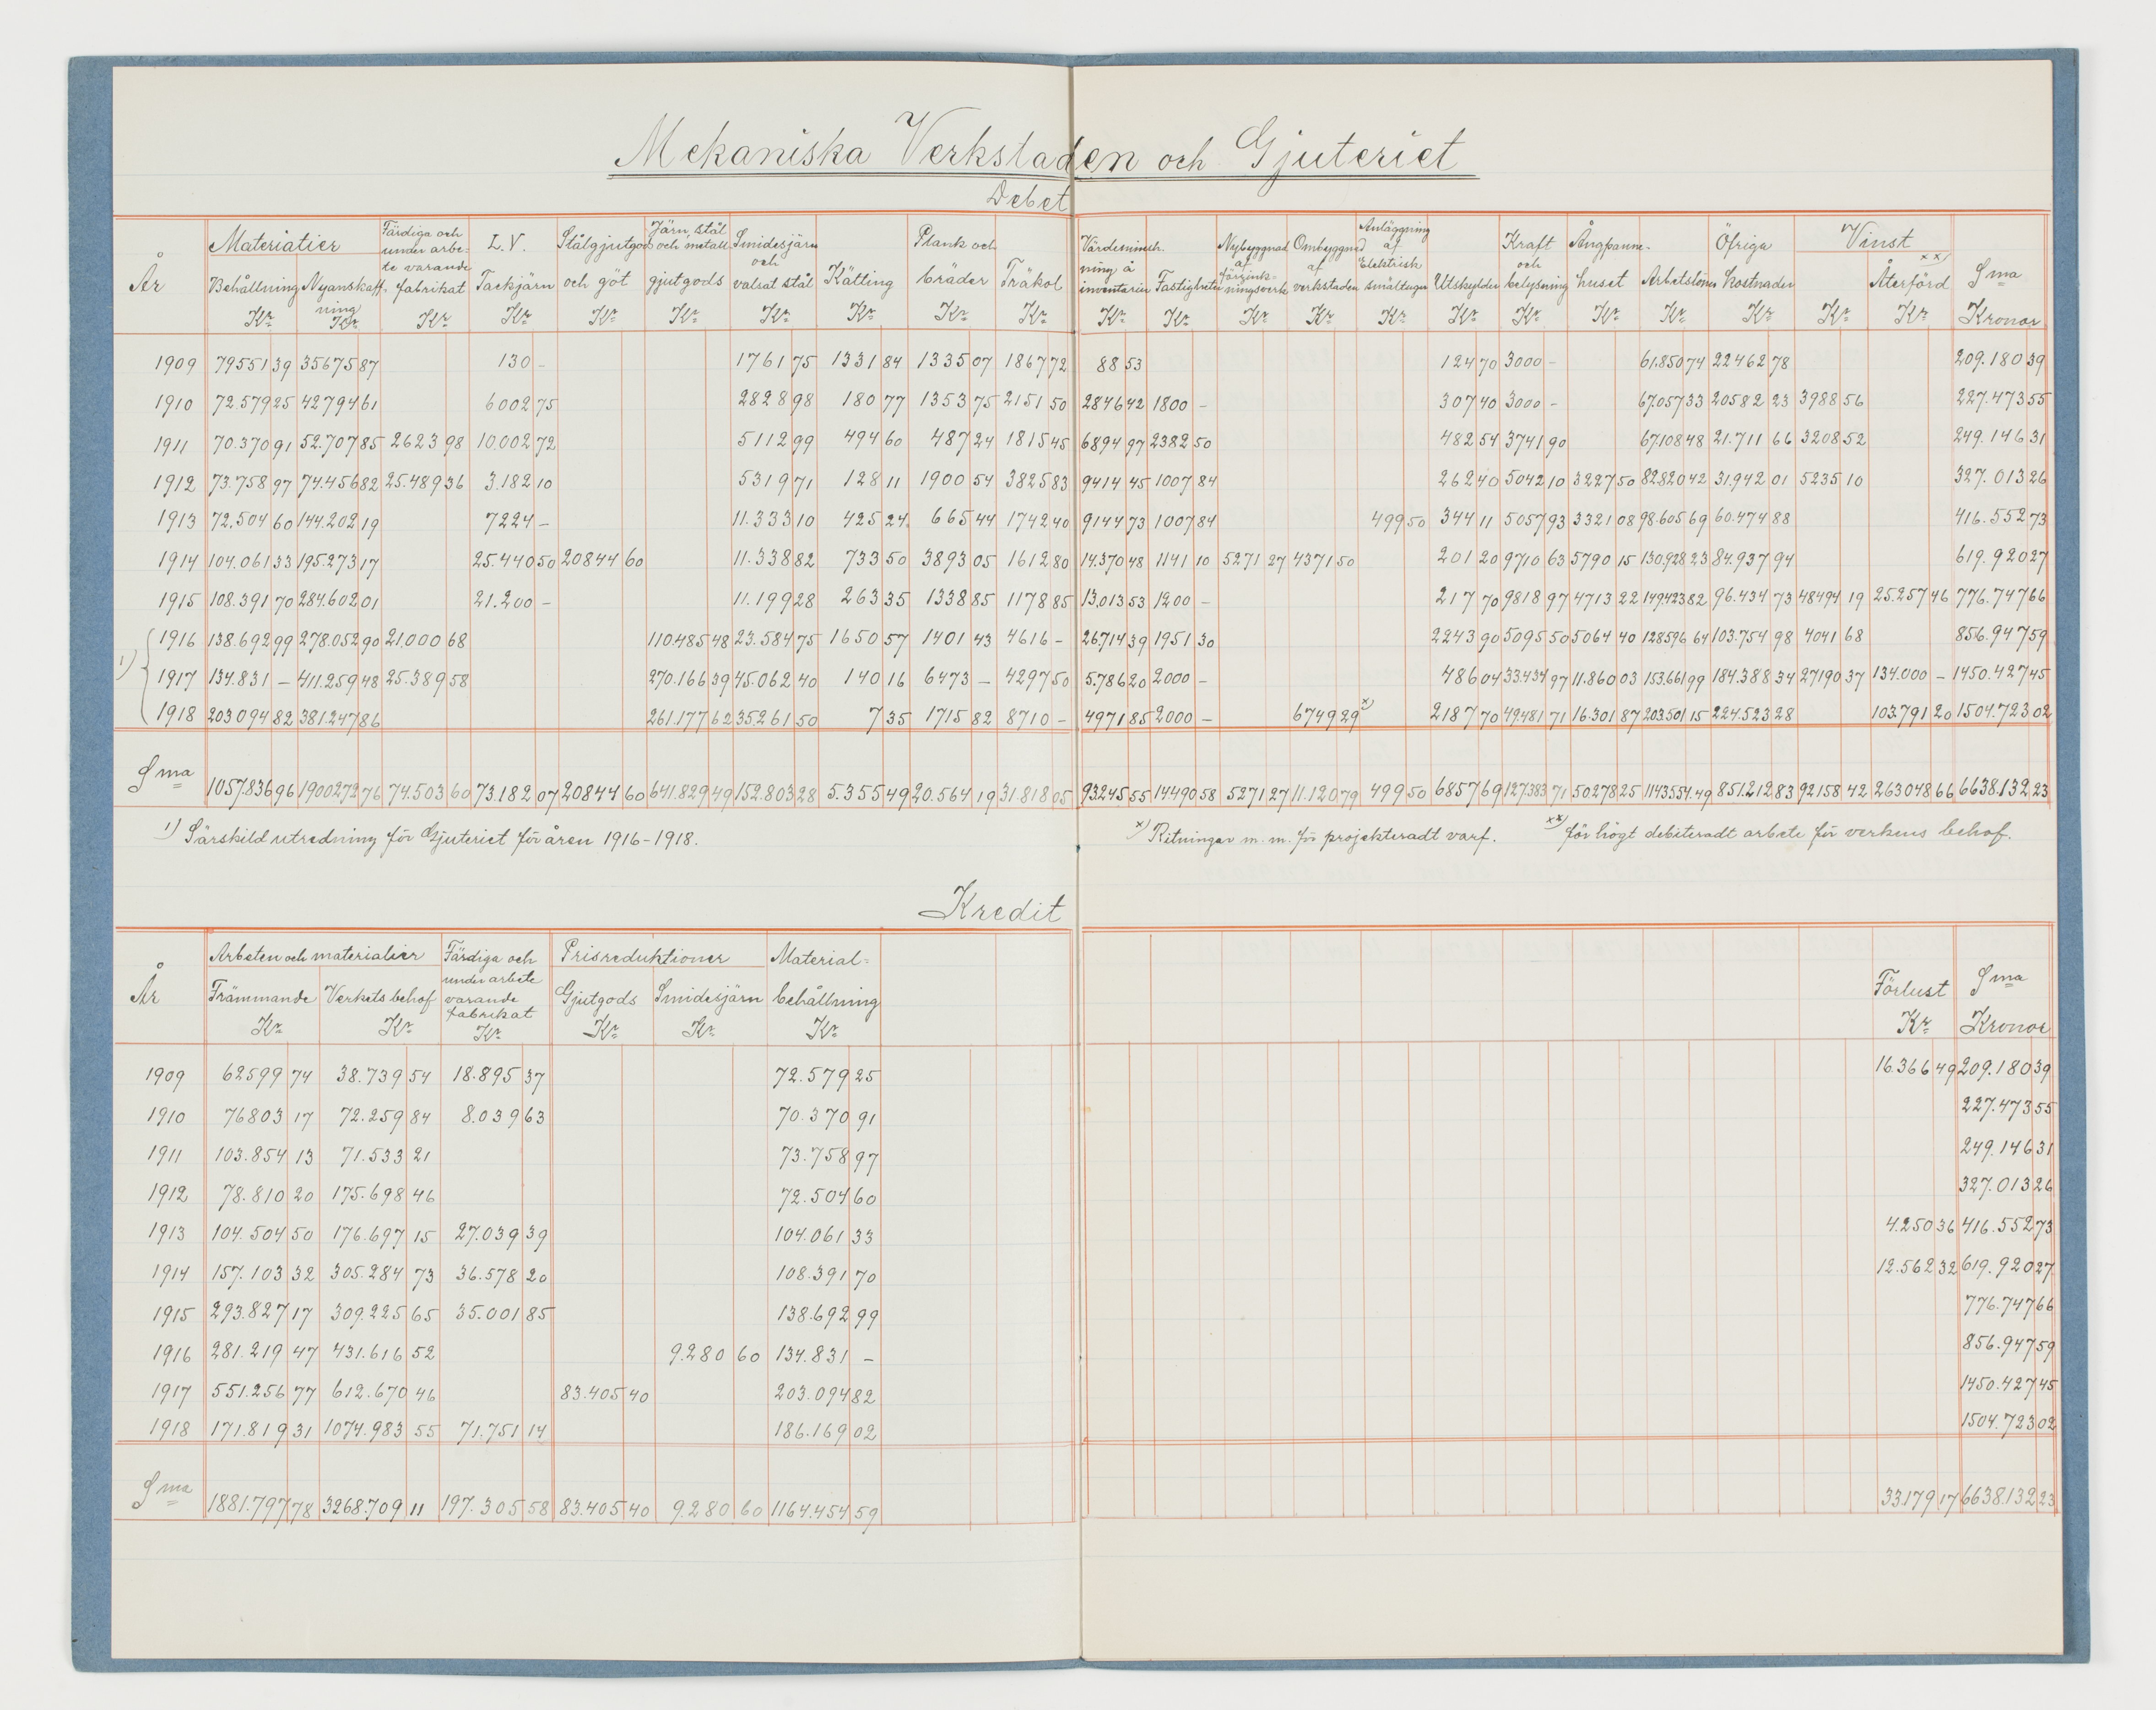 Mekaniska Verkstaden och Gjuteriet
Debet
År Materialier Behållning Kr Nyanskaffning Kr Färdiga och under arbete varande fabrikat Kr L.V. Tackjärn Kr Stålgjutgods och göt Kr Järn, stål och metall gjutgods Kr Smidesjärn och valsat stål Kr Kätting Kr Plank och bräder Kr Träkol Kr Värdeminskning å inventarier Kr Fastigheter Kr Nybyggnad af förzinkningsverk Kr Ombyggnad af verkstaden Kr Anläggning af Elektrisk smältugn Kr Utskylder Kr Kraft och belysning Kr Ångpannehuset Kr Arbetslöner Kr Öfriga kostnader Kr Vinst Kr Återförd xx) Kr Sma Kronor
1909 79551 39 35675 87 130 - 1761 75 1331 84 1335 07 1867 72 88 53 124 70 3000 - 61.850 74 22462 78 209.180 39
1910 72.579 25 42794 61 6002 75 2828 98 180 77 1353 75 2151 50 2846 42 1800 - 307 40 3000 - 67.057 33 20582 23 3988 56 227.473 55
1911 70.370 91 52.707 85 2623 98 10.002 72 5112 99 494 60 487 24 1815 45 6894 97 2382 50 482 54 3741 90 67.108 48 21.711 66 3208 52 249.146 31
1912 73.758 97 74.456 82 25.489 36 3.182 10 5319 71 128 11 1900 54 3825 83 9414 45 1007 84 262 40 5042 10 3227 50 82820 42 31.942 01 5235 10 327.013 26
1913 72.504 60 144.202 19 7224 - 11.333 10 425 24 665 44 1742 40 9144 73 1007 84 499 50 344 11 5057 93 3321 08 98.605 69 60.474 88 416.552 73
1914 104.061 33 195.273 17 25.440 50 20844 60 11.338 82 733 50 3893 05 1612 80 14.370 48 1141 10 5271 27 4371 50 201 20 9710 63 5790 15 130.928 23 84.937 94 619.920 27
1915 108.391 70 284.602 01 21.200 - 11.199 28 263 35 1338 85 1178 85 13.013 53 1200 - 217 70 9818 97 4713 22 149.423 82 96.434 73 48494 19 25.257 46 776.747 66
1) 1916 138.692 99 278.052 90 21.000 68 110.485 48 23.584 75 1650 57 1401 43 4616 - 26714 39 1951 30 2243 90 5095 50 5064 40 128596 64 103.754 98 4041 68 856.947 59
1917 134.831 - 411.259 48 25.389 58 270.166 39 45.062 40 140 16 6473 - 4297 50 5.786 20 2000 - 486 04 33.434 97 11.860 03 153.661 99 184.388 34 27190 37 134.000 - 1450.427 45
1918 203 094 82 381.247 86 261.177 62 35.261 50 7 35 1715 82 8710 - 4971 85 2000 - 6749 29 x) 2187 70 49.481 71 16.301 87 203.501 15 224.523 28 103.791 20 1504.723 02
Sma 1057.836 96 1900272 76 74.503 60 73.182 07 20844 60 641.829 49 152.803 28 5.355 49 20.564 19 31.818 05 93245 55 14490 58 5271 27 11.120 79 499 50 6857 69 127.383 71 50278 25 1143554.49 851.212 83 92158 42 263048 66 6638.132 23
1) Särskild utredning för Gjuteriet för åren 1916-1918.
x) Ritningar m. m. för projekteradt varf.
xx) för högt debiteradt arbete för verkens behof.
Kredit
År Arbeten och materialier Främmande Kr Verkets behof Kr Färdiga och under arbete varande fabrikat Kr Prisreduktioner Gjutgods Kr Smidesjärn Kr Materialbehållning Kr Förlust Kr Sma Kronor
1909 62599 74 38.739 54 18.895 37 72.579 25 16.366 49 209.180 39
1910 76803 17 72.259 84 8.039 63 70.370 91 227.473 55
1911 103.854 13 71.533 21 73.758 97 249.146 31
1912 78.810 20 175.698 46 72.504 60 327.013 26
1913 104.504 50 176.697 15 27.039 39 104.061 33 4.250 36 416.552 73
1914 157.103 32 305.284 73 36.578 20 108.391 70 12.562 32 619.920 27
1915 293.827 17 309.225 65 35.001 85 138.692 99 776.747 66
1916 281.219 47 431.616 52 9.280 60 134.831 - 856.947 59
1917 551.256 77 612.670 46 83.405 40 203.094 82 1450.427 45
1918 171.819 31 1074.983 55 71.751 14 186.169 02 1504.723 02
Sma 1881.797 78 3268.709 11 197.305 58 83.405 40 9.280 60 1164.454 59 33.179 17 6638.132 23